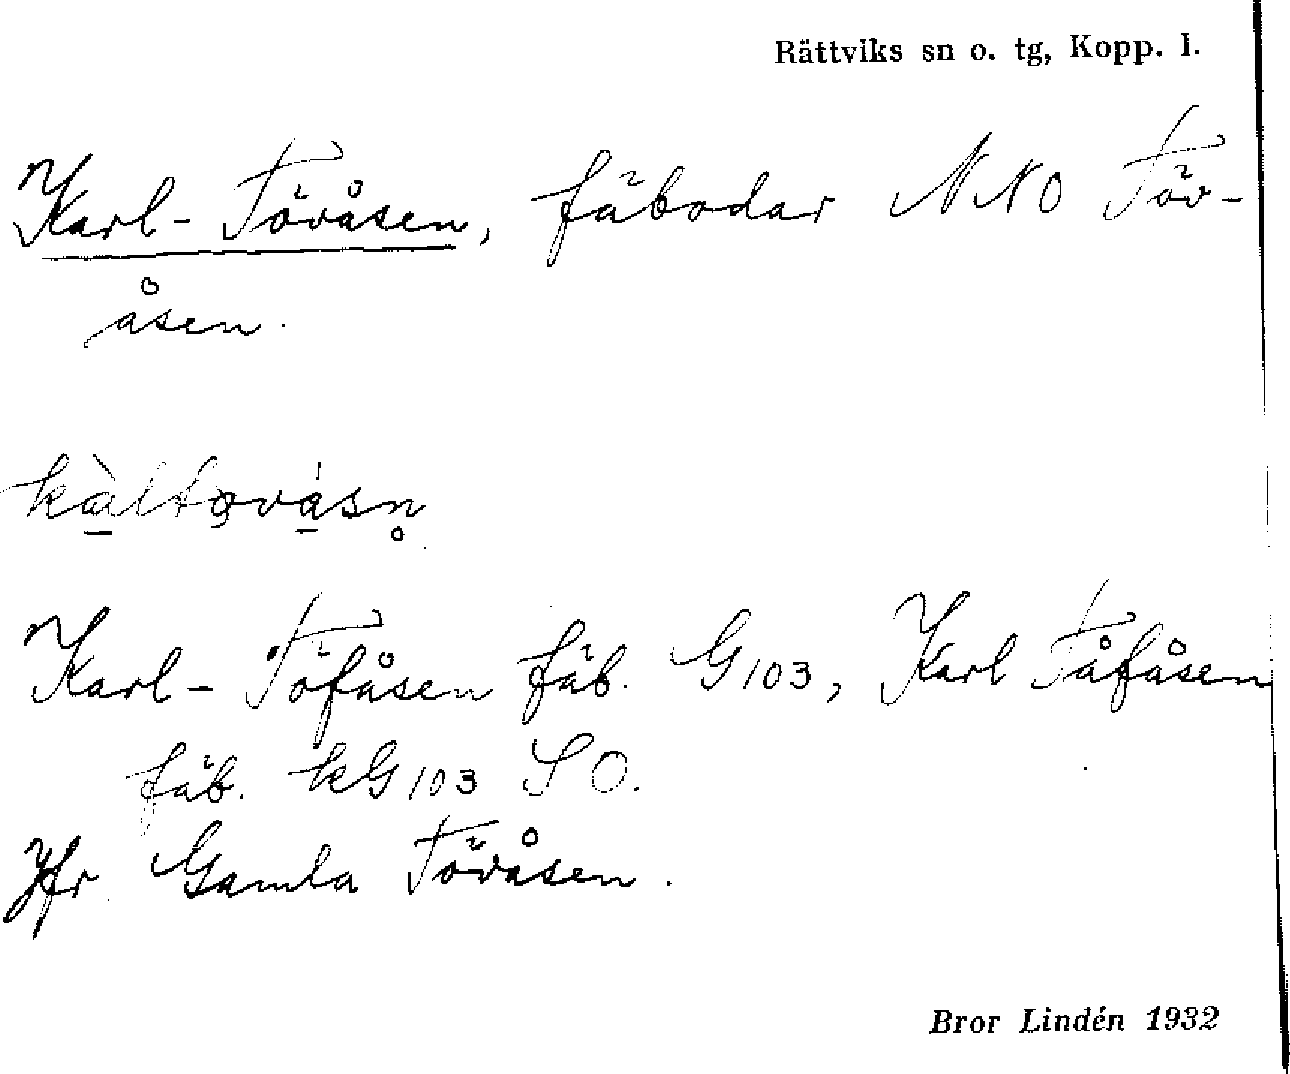 Rättviks sn o. tg, Kopp. l.
Karl-Tövåsen, fäbodar NNO Töv-
åsen.
kàltǫvásn̥
Karl-Töfåsen fäb. G103, Karl Tåfåsen
fäb. kG103 SO.
Jfr Gamla Tövåsen.
Bror Lindén 1932